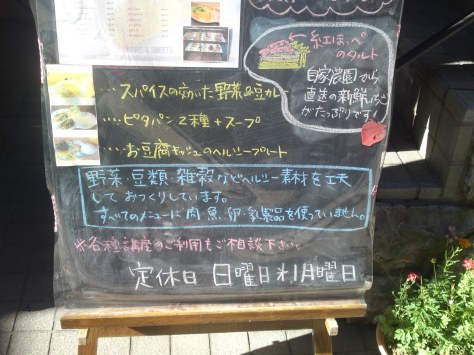 紅ほっぺ
のタルト
自家農園から
直送の新鮮いちご
がたっぷりです!
…スパイスの効いた野菜&豆カレー
…ピタパン2種+スープ
…お豆腐キッシュのヘルシープレート
野菜、豆類、雑穀などヘルシー素材を工夫
しておつくりしています。
すべてのメニューに肉、魚、卵、乳製品を使っていません。
※各種講座のご利用もご相談下さい。
定休日 日曜日、第1月曜日